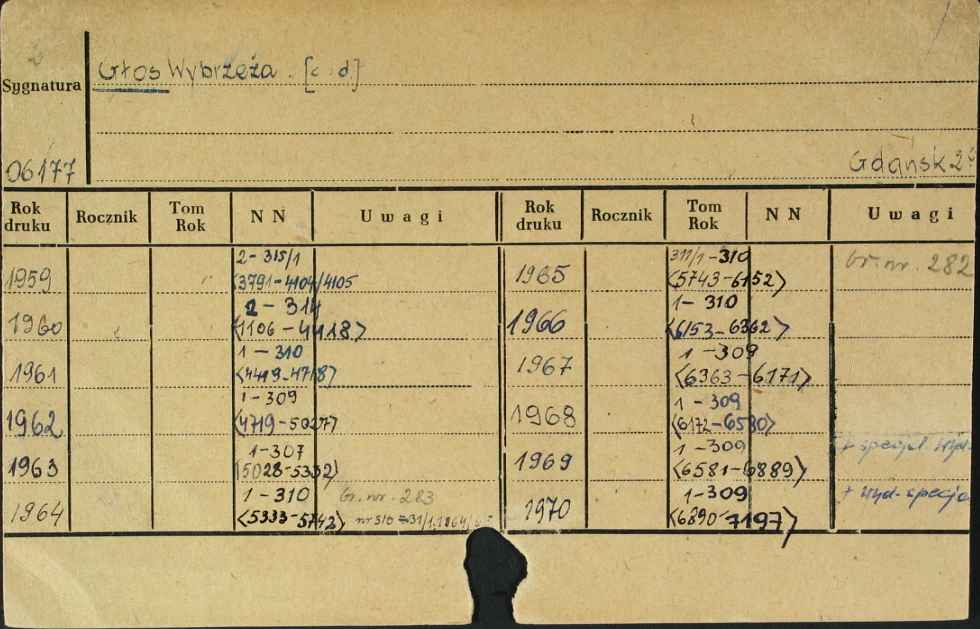 Sygnatura
Głos Wybrzeża. [c.d.]
06177
Gdańsk
Rok druku Rocznik Tom Rok NN Uwagi Rok druku Rocznik Tom Rok NN Uwagi
2-315/1
1959 <3791-4104/4105
2-314
1960 <1106-4418>
1-310
1961 <4419-4728>
1-309
1962 <4719-5027>
1-307
1963 <5028-5332>
1-310 br. nr. 283
1964 <5333-5742>
311/1-310 br. nr. 282
1965 <5743-6152>
1-310
1966 <6153-6362>
1-309
1967 <6363-6171>
1-309
1968 <6172-6580>
1-309 + specjal.
1969 <6581-6889>
1-309 + wyd. specja
1970 <6890-7197>